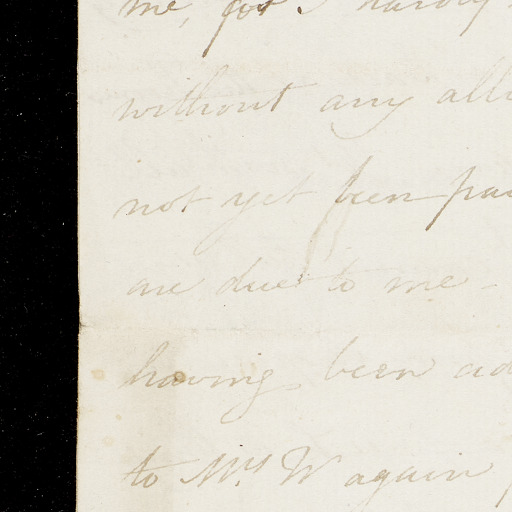 me, for I hardly
without any
not yet been
are due to me -
having been
to Mrs. W again